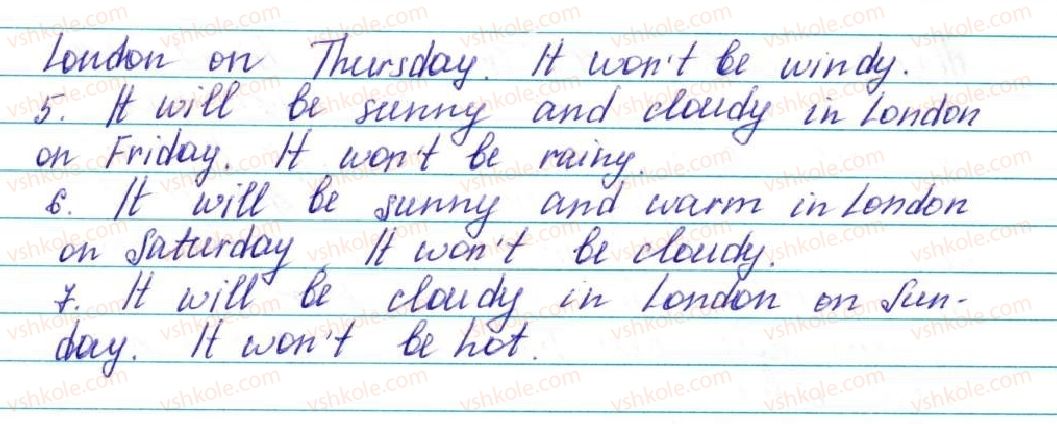 London on Thursday. It won't be windy.
5. It will be sunny and cloudy in London
on Friday. It won't be rainy.
6. It will be sunny and warm in London
on Saturday It won't be cloudy.
7. It will be cloudy in London on Sun-
day. It won't be hot.
vshkole.com